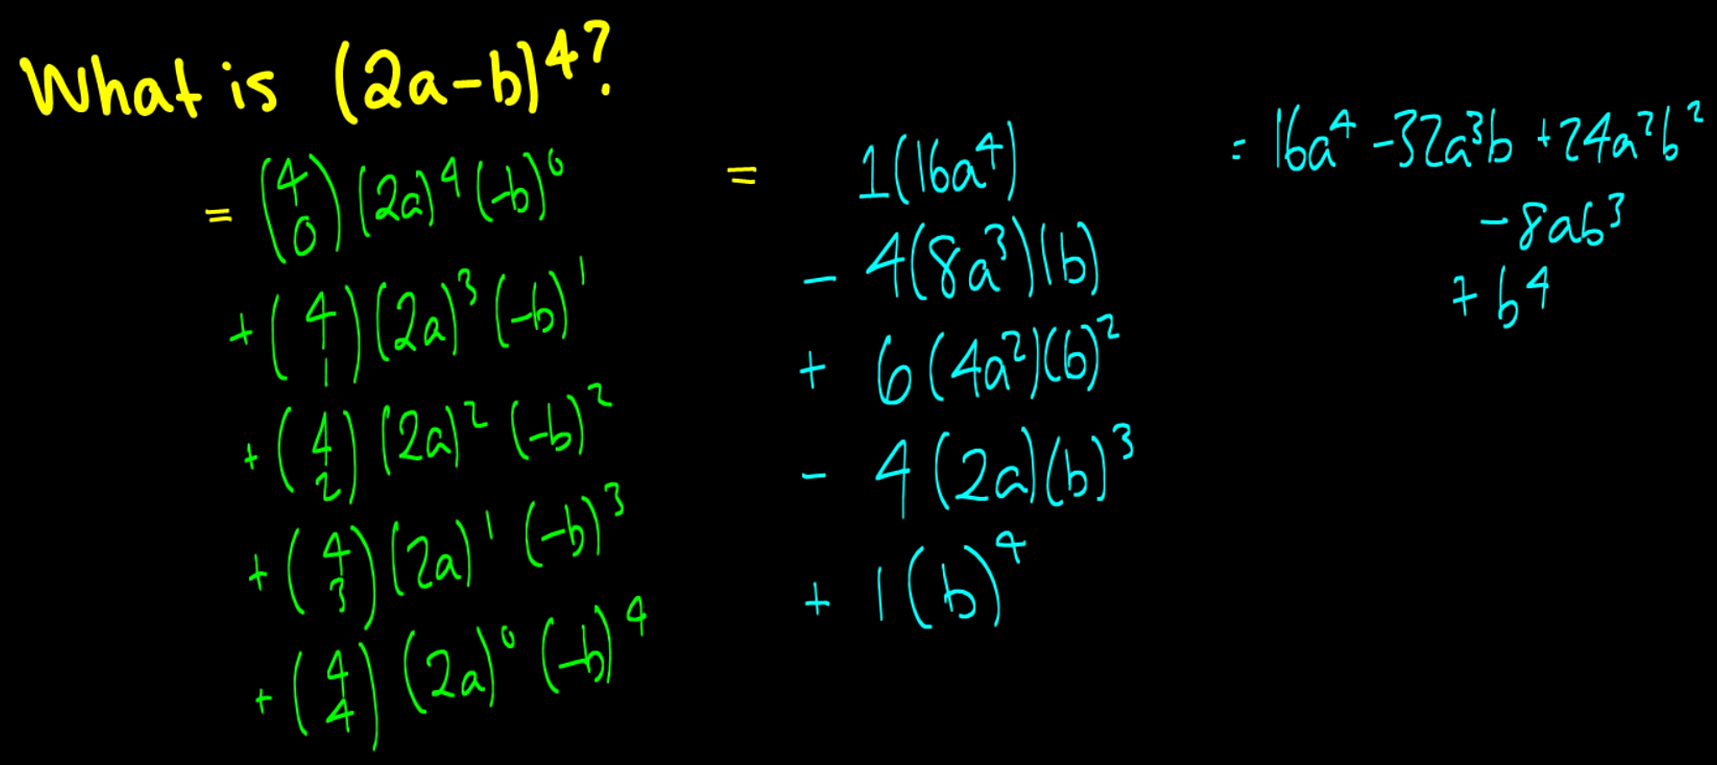 What is (2a-b)^4?
= (4 0) (2a)^4 (-b)^0
+ (4 1) (2a)^3 (-b)^1
+ (4 2) (2a)^2 (-b)^2
+ (4 3) (2a)^1 (-b)^3
+ (4 4) (2a)^0 (-b)^4
= 1(16a^4)
- 4(8a^3)(b)
+ 6(4a^2)(b)^2
- 4(2a)(b)^3
+ 1(b)^4
= 16a^4 -32a^3b +24a^2b^2
- 8ab^3
+ b^4